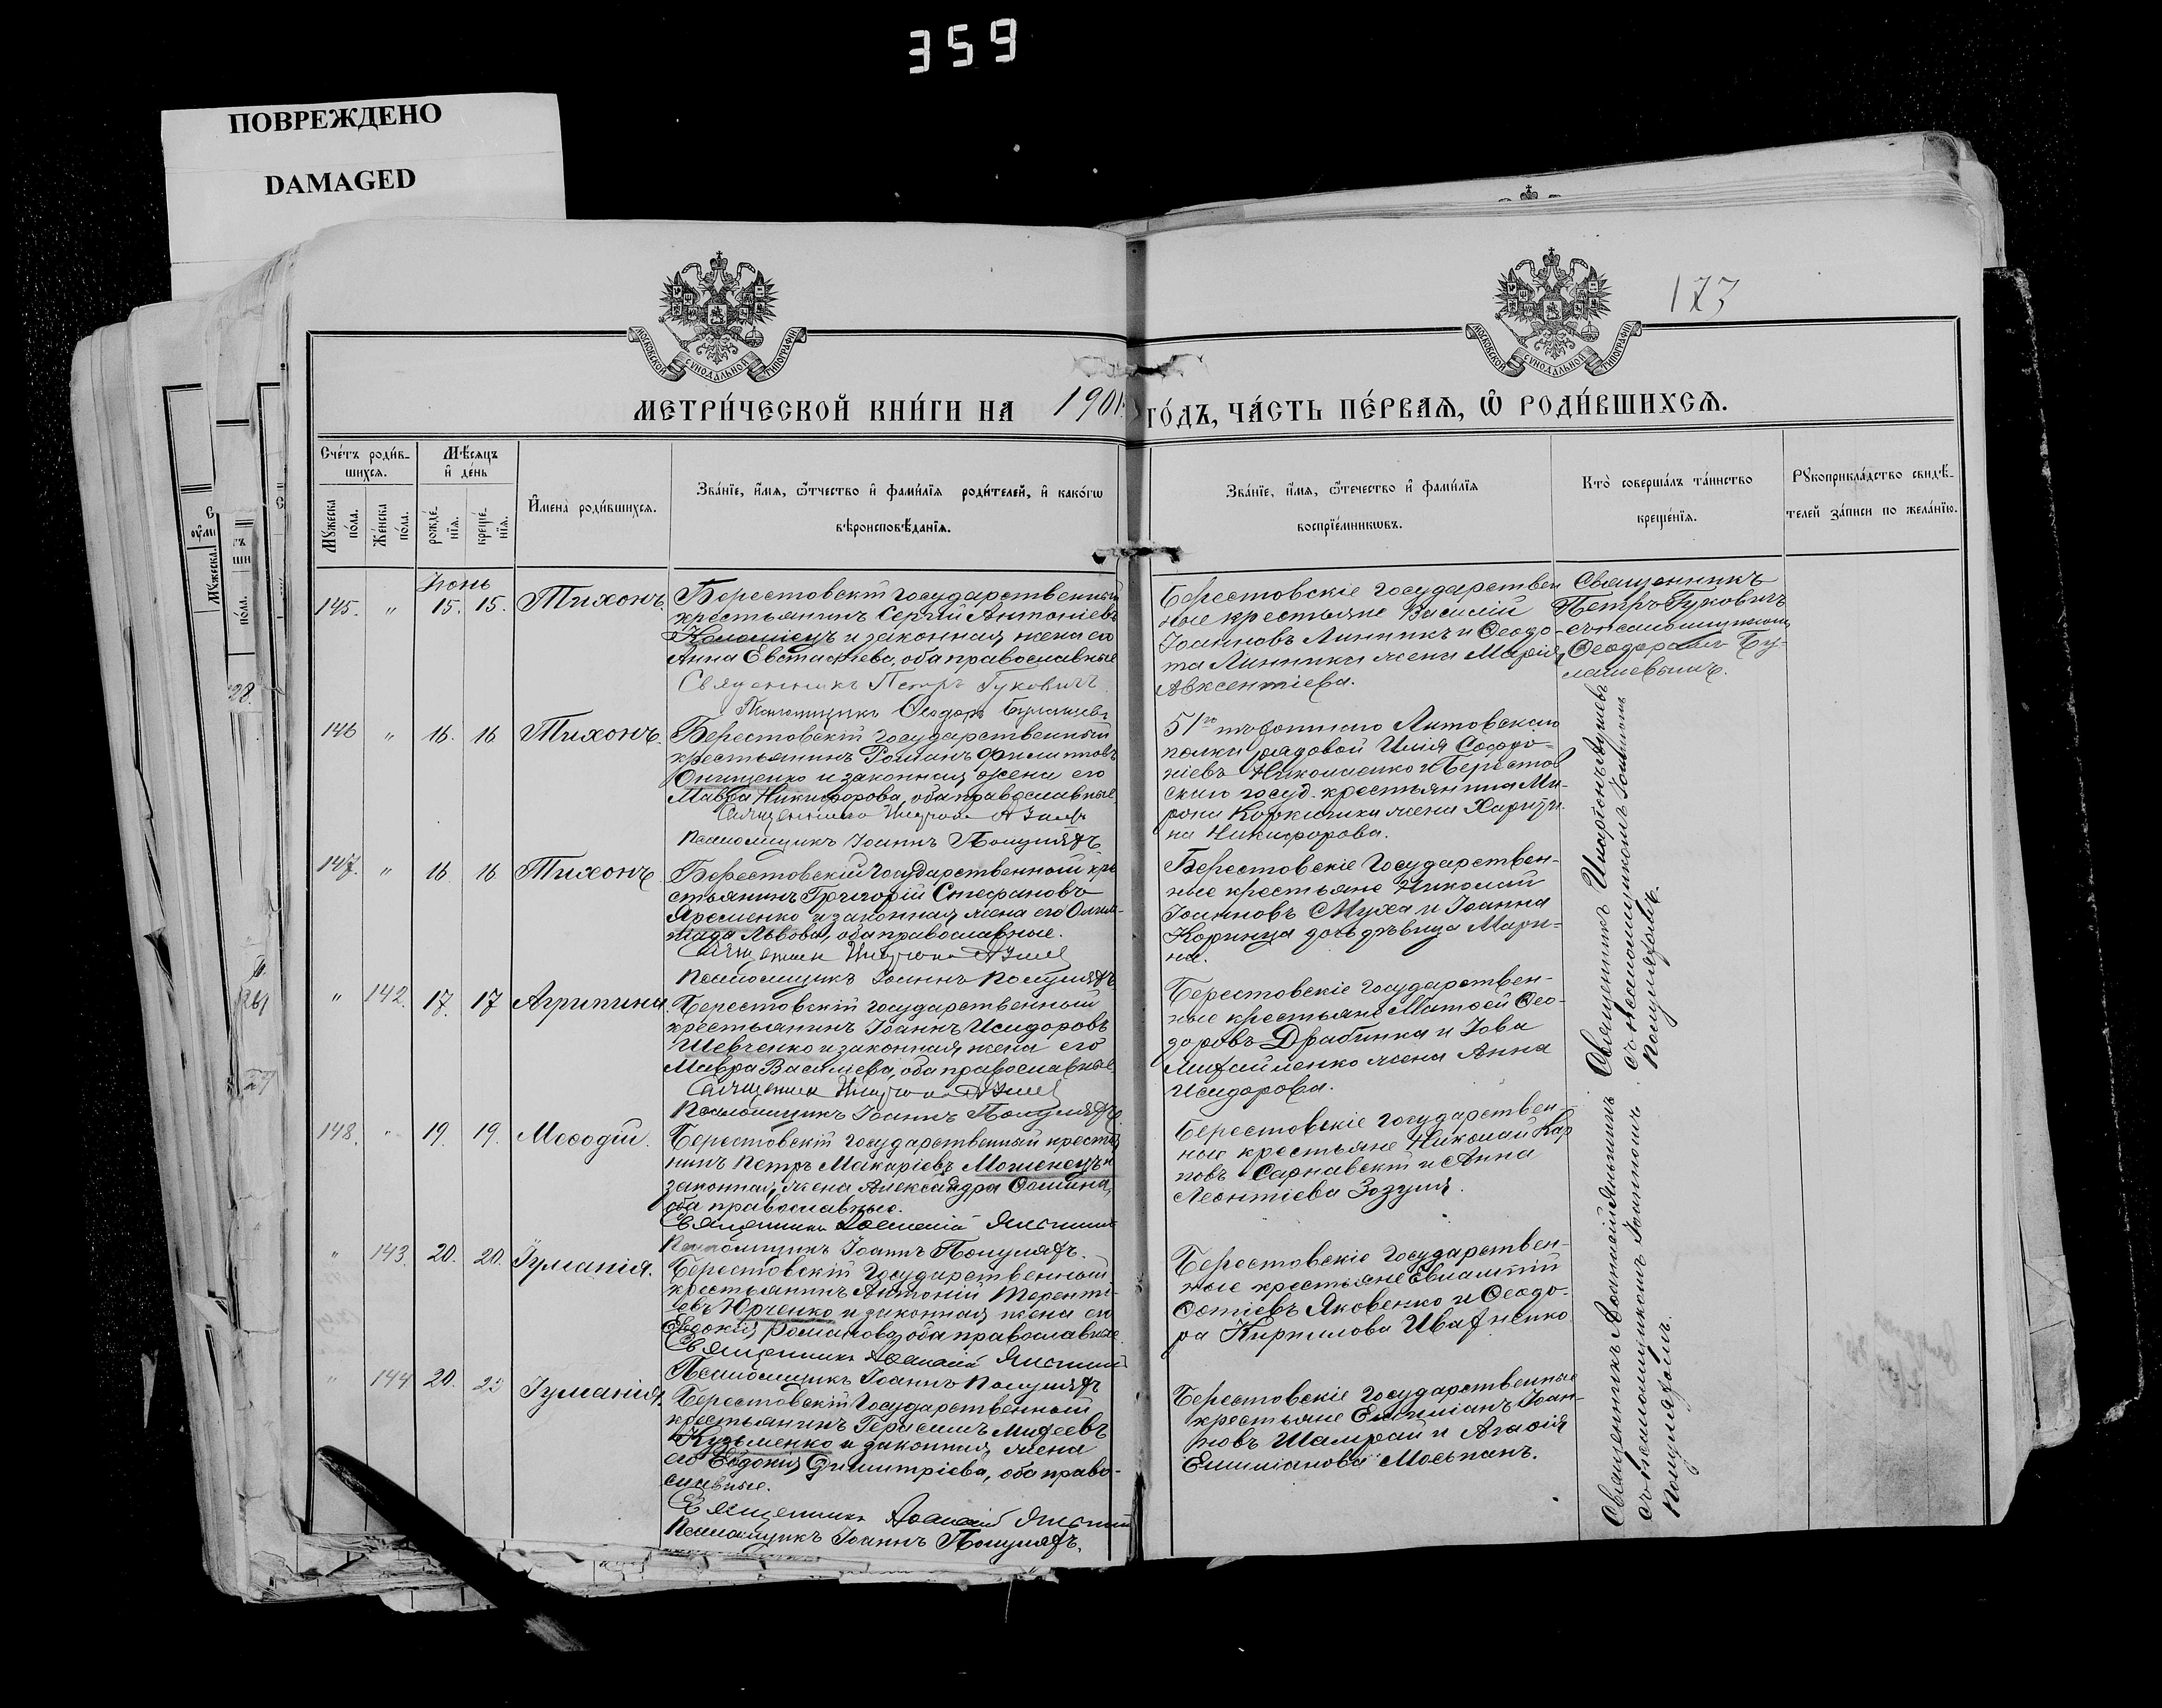 359
ПОВРЕЖДЕНО
DAMAGED
173
МОСКОВСКОЙ СѴНОДАЛЬНОЙ ТИПОГРАФІИ
МОСКОВСКОЙ СѴНОДАЛЬНОЙ ТИПОГРАФІИ
МЕТРИ́ЧЕСКОЙ КНИ́ГИ НА 1901 ГО́ДЪ, ЧА́СТЬ ПЕ́РВАѦ, Ѽ РОДИ́ВШИХСѦ.
Сче́тъ роди́в-
шихсѧ.
Мѣ́сѧцъ
и҆ де́нь
Мꙋ́жеска
по́ла.
Же́нска
по́ла.
рожде́-
нїѧ.
креще́-
нїѧ.
И҆мена̀ роди́вшихсѧ.
Зва́нїе, и҆́мѧ, ѻ҆́тчество и҆ фами́лїѧ роди́телей, и҆ како́гѡ
вѣроисповѣ́данїѧ.
Зва́нїе, и҆́мѧ, ѻ҆́течество и҆ фами́лїѧ
воспрїе́мникѡвъ.
Кто̀ соверша́лъ та́инство
креще́нїѧ.
Рꙋкоприкла́дство свидѣ́-
телей за́писи по жела́нїю.
Іюнь
145. " 15. 15. Тихонъ.
Берестовскій государственный
крестьянинъ Сергій Антоніевъ
Коломіецъ и законная жена его
Анна Евстафіева, оба православные
Священникъ Петръ Гуковичъ
Псаломщикъ Ѳеодоръ Булашевъ
Берестовскіе государствен
ные крестьяне Василій
Іоанновъ Линникъ и Ѳеодо-
та Линника жена Марія
Авксентіева.
Священникъ
Петръ Гуковичъ
съ псаломщикомъ
Ѳеодоромъ Бу-
лашевымъ.
146 " 16. 16 Тихонъ.
Берестовскій государственный
крестьянинъ Романъ Филипповъ
Онищенко и законная жена его
Мавра Никифорова, оба православные
Псаломщикъ Іоаннъ Полуляхъ
51го пѣхотнаго Литовскаго
полка рядовой Илія Софро-
ніевъ Николаенко и Берестов
скаго госуд. крестьянина Ми-
рона Коржика жена Харити-
на Никифорова.
147. " 16 16 Тихонъ.
Берестовскій Государственный кре
стьянинъ Григорій Стефановъ
Яременко и законная жена его Олим-
піада Львова, оба православные.
Псаломщикъ Іоаннъ Полуляхъ
Берестовскіе Государствен-
ные крестьяне Николай
Іоанновъ Муха и Іоанна
Коринца дочь дѣвица Мари-
на.
" 142. 17. 17 Агрипина.
Берестовскій государственный
крестьянинъ Іоаннъ Исидоровъ
Шевченко и законная жена его
Мавра Василіева, оба православные
Псаломщикъ Іоаннъ Полуляхъ.
Берестовскіе государствен-
ные крестьяне Матѳей Ѳео-
доровъ Драбинка и Іова
Михайленко жена Анна
Исидорова.
148. " 19. 19. Меѳодій.
Берестовскій государственный крестья
нинъ Петръ Макаріевъ Моженецъ и
законная жена Александра Ѳомина,
оба православные.
Псаломщикъ Іоаннъ Полуляхъ.
Берестовскіе государствен-
ные крестьяне Николай Кар
повъ Сарнавскій и Анна
Леонтіева Зозуля.
" 143. 20. 20. Іуліанія.
Берестовскій Государственный
крестьянинъ Антоній Теренті-
евъ Юрченко и законная жена его
Евдокія Романова, оба православные.
Псаломщикъ Іоаннъ Полуляхъ
Берестовскіе Государствен-
ные крестьяне Евлампій
Ѳотіевъ Яковенко и Ѳеодо-
ра Кириллова Ивахненко
" 144 20. 22 Іуліанія.
Берестовскій Государственный
крестьянинъ Герасимъ Михеевъ
Кузьменко и законная жена
его Евдокія Димитріева, оба право-
славные.
Псаломщикъ Іоаннъ Полуляхъ.
Берестовскіе Государственные
крестьяне Емиліанъ Іоан-
новъ Шамрай и Агафія
Емиліанова Моспанъ.
съ псаломщикомъ Іоанномъ
Полуляхомъ.
съ псаломщикомъ Іоанномъ
Полуляхомъ.